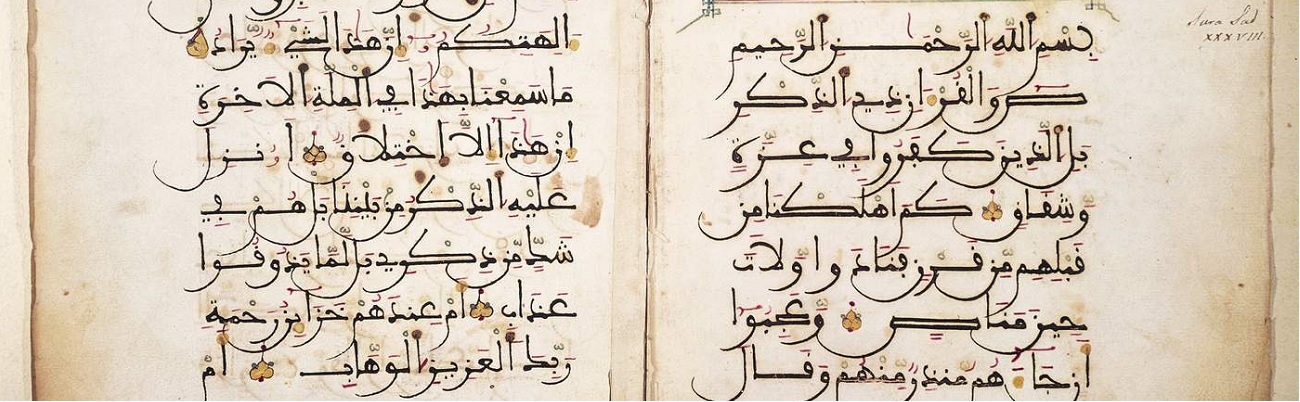 Sura Sad
XXXVIII.
بسم الله الرحمن الرحيم
ص والقرءان ذي الذكر
بل الذين كفروا في عزة
وشقاق كم اهلكنا من
قبلهم من قرن فنادوا ولات
حين مناص وعجبوا
ان جاءهم منذر منهم وقال
الهتكم ان هذا لشيء يراد
ما سمعنا بهذا في الملة الاخرة
ان هذا الا اختلاق انزل
عليه الذكر من بيننا بل هم في
شك من ذكري بل لما يذوقوا
عذاب ام عندهم خزاين رحمة
ربك العزيز الوهاب ام